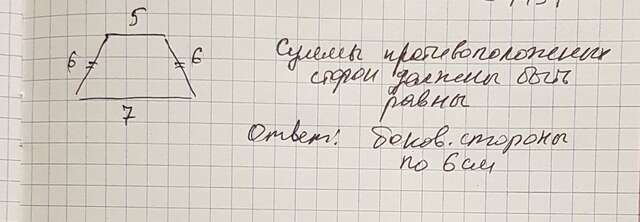 5
6
6
7
Суммы противоположных
сторон должны быть
равны
Ответ: боков. стороны
по 6 см